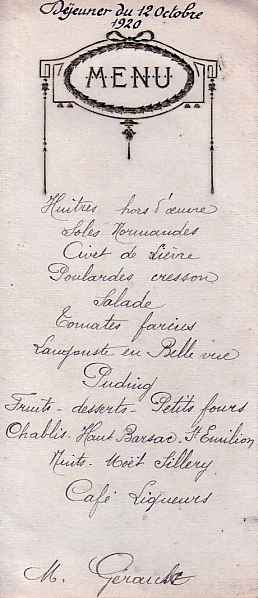 Déjeuner du 12 Octobre
1920
MENU
Huitres hors d'œuvre
Soles Normandes
Civet de Lièvre
Poulardes cresson
Salade
Tomates farcies
Langouste en Belle vue
Puding
Fruits - desserts - Petits fours
Chablis - Haut Barsac - St Emilion
Nuits - Moët Sillery
Café Liqueurs
M. Gérault